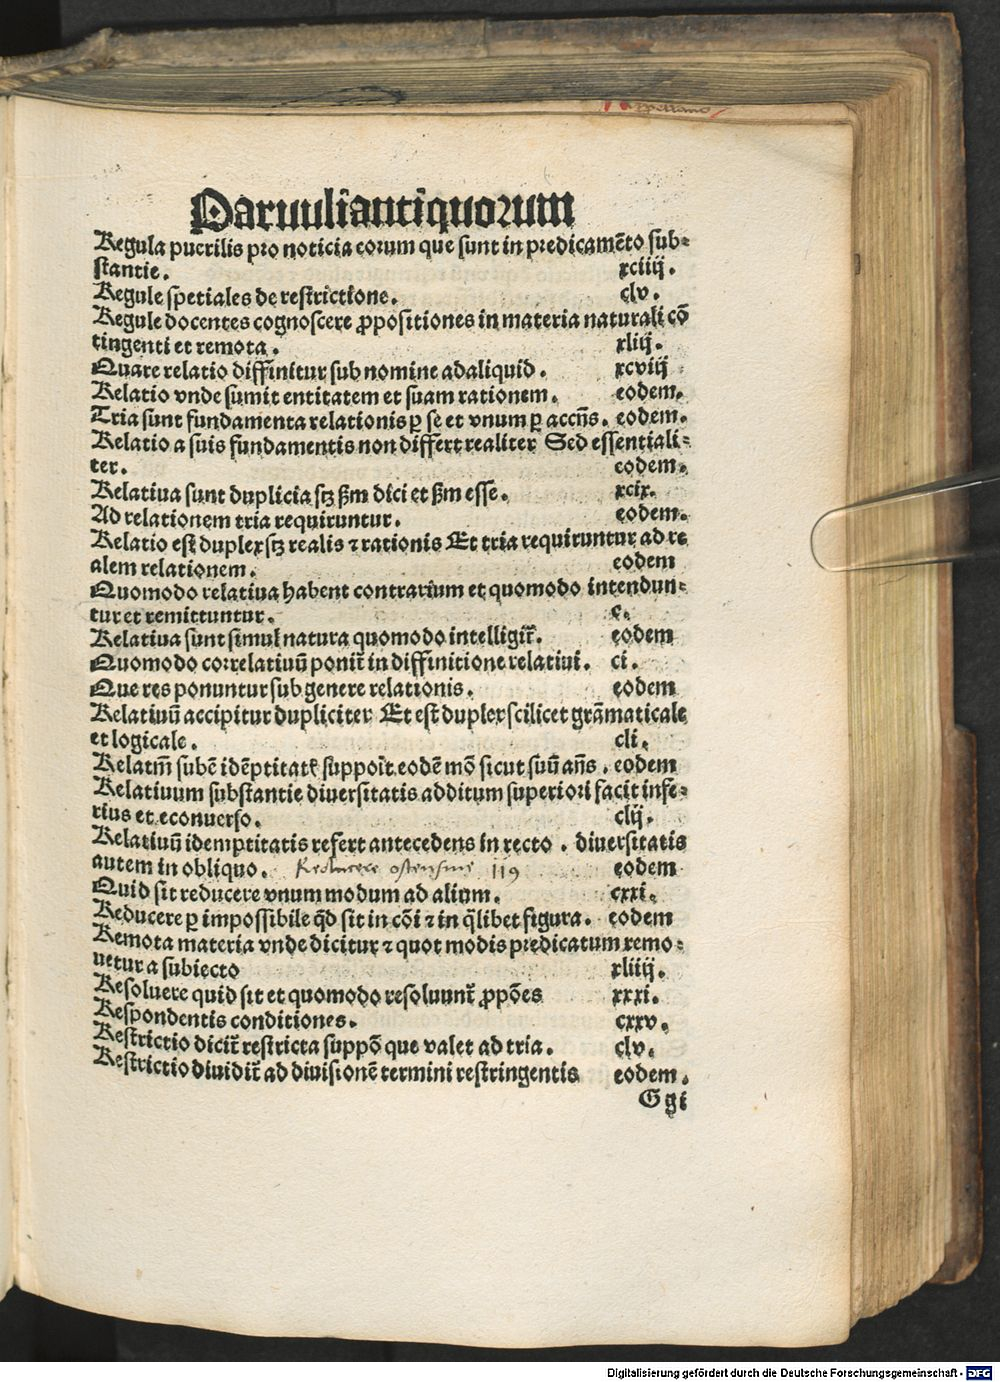 Paruuli antiquorum
Regula puerilis pro noticia eorum que sunt in predicamēto sub-
stantie. xciiij.
Regule spetiales de restrictione. clv.
Regule docentes cognoscere ꝓpositiones in materia naturali cō
tingenti et remota. xliij.
Quare relatio diffinitur sub nomine ad aliquid. xcviij
Relatio vnde sumit entitatem et suam rationem. eodem.
Tria sunt fundamenta relationis ꝑ se et vnum ꝑ accn̄s. eodem.
Relatio a suis fundamentis non differt realiter Sed essentiali-
ter. eodem.
Relatiua sunt duplicia sꝫ ẜm dici et ẜm esse. xcix.
Ad relationem tria requiruntur. eodem.
Relatio est duplex sꝫ realis ⁊ rationis Et tria requiruntur ad re
alem relationem. eodem
Quomodo relatiua habent contrarium et quomodo intendun-
tur et remittuntur. c.
Relatiua sunt simul natura quomodo intelligit̄. eodem
Quomodo correlatiuū ponit̄ in diffinitione relatiui. ci.
Que res ponuntur sub genere relationis. eodem
Relatiuū accipitur dupliciter Et est duplex scilicet grāmaticale
et logicale. cli.
Relatm̄ subē idēptitatꝭ suppoīt eodē mō sicut suū an̄s. eodem
Relatiuum substantie diuersitatis additum superiori facit infe-
rius et econuerso. clij.
Relatiuū idemptitatis refert antecedens in recto. diuersitatis
autem in obliquo. eodem
Reducere ostensiue 119
Quid sit reducere vnum modum ad alium. cxxi.
Reducere ꝑ impossibile qḋ sit in cōi ⁊ in q̄libet figura. eodem
Remota materia vnde dicitur ⁊ quot modis predicatum remo-
uetur a subiecto xliiij.
Resoluere quid sit et quomodo resoluunt̄ ꝓpōes xxxi.
Respondentis conditiones. cxxv.
Restrictio dicit̄ restricta suppō que valet ad tria. clv.
Restrictio diuidit̄ ad diuisionē termini restringentis eodem.
Ggi
Digitalisierung gefördert durch die Deutsche Forschungsgemeinschaft - DFG